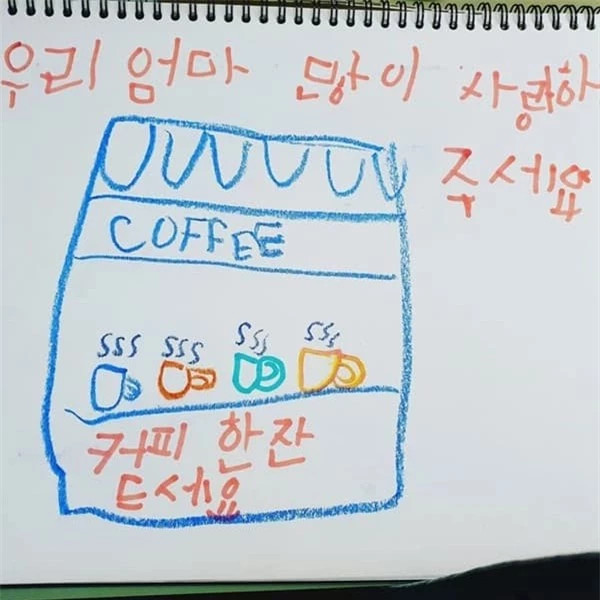 우리 엄마 많이 사랑해
주세요
COFFEE
커피 한잔
드세요